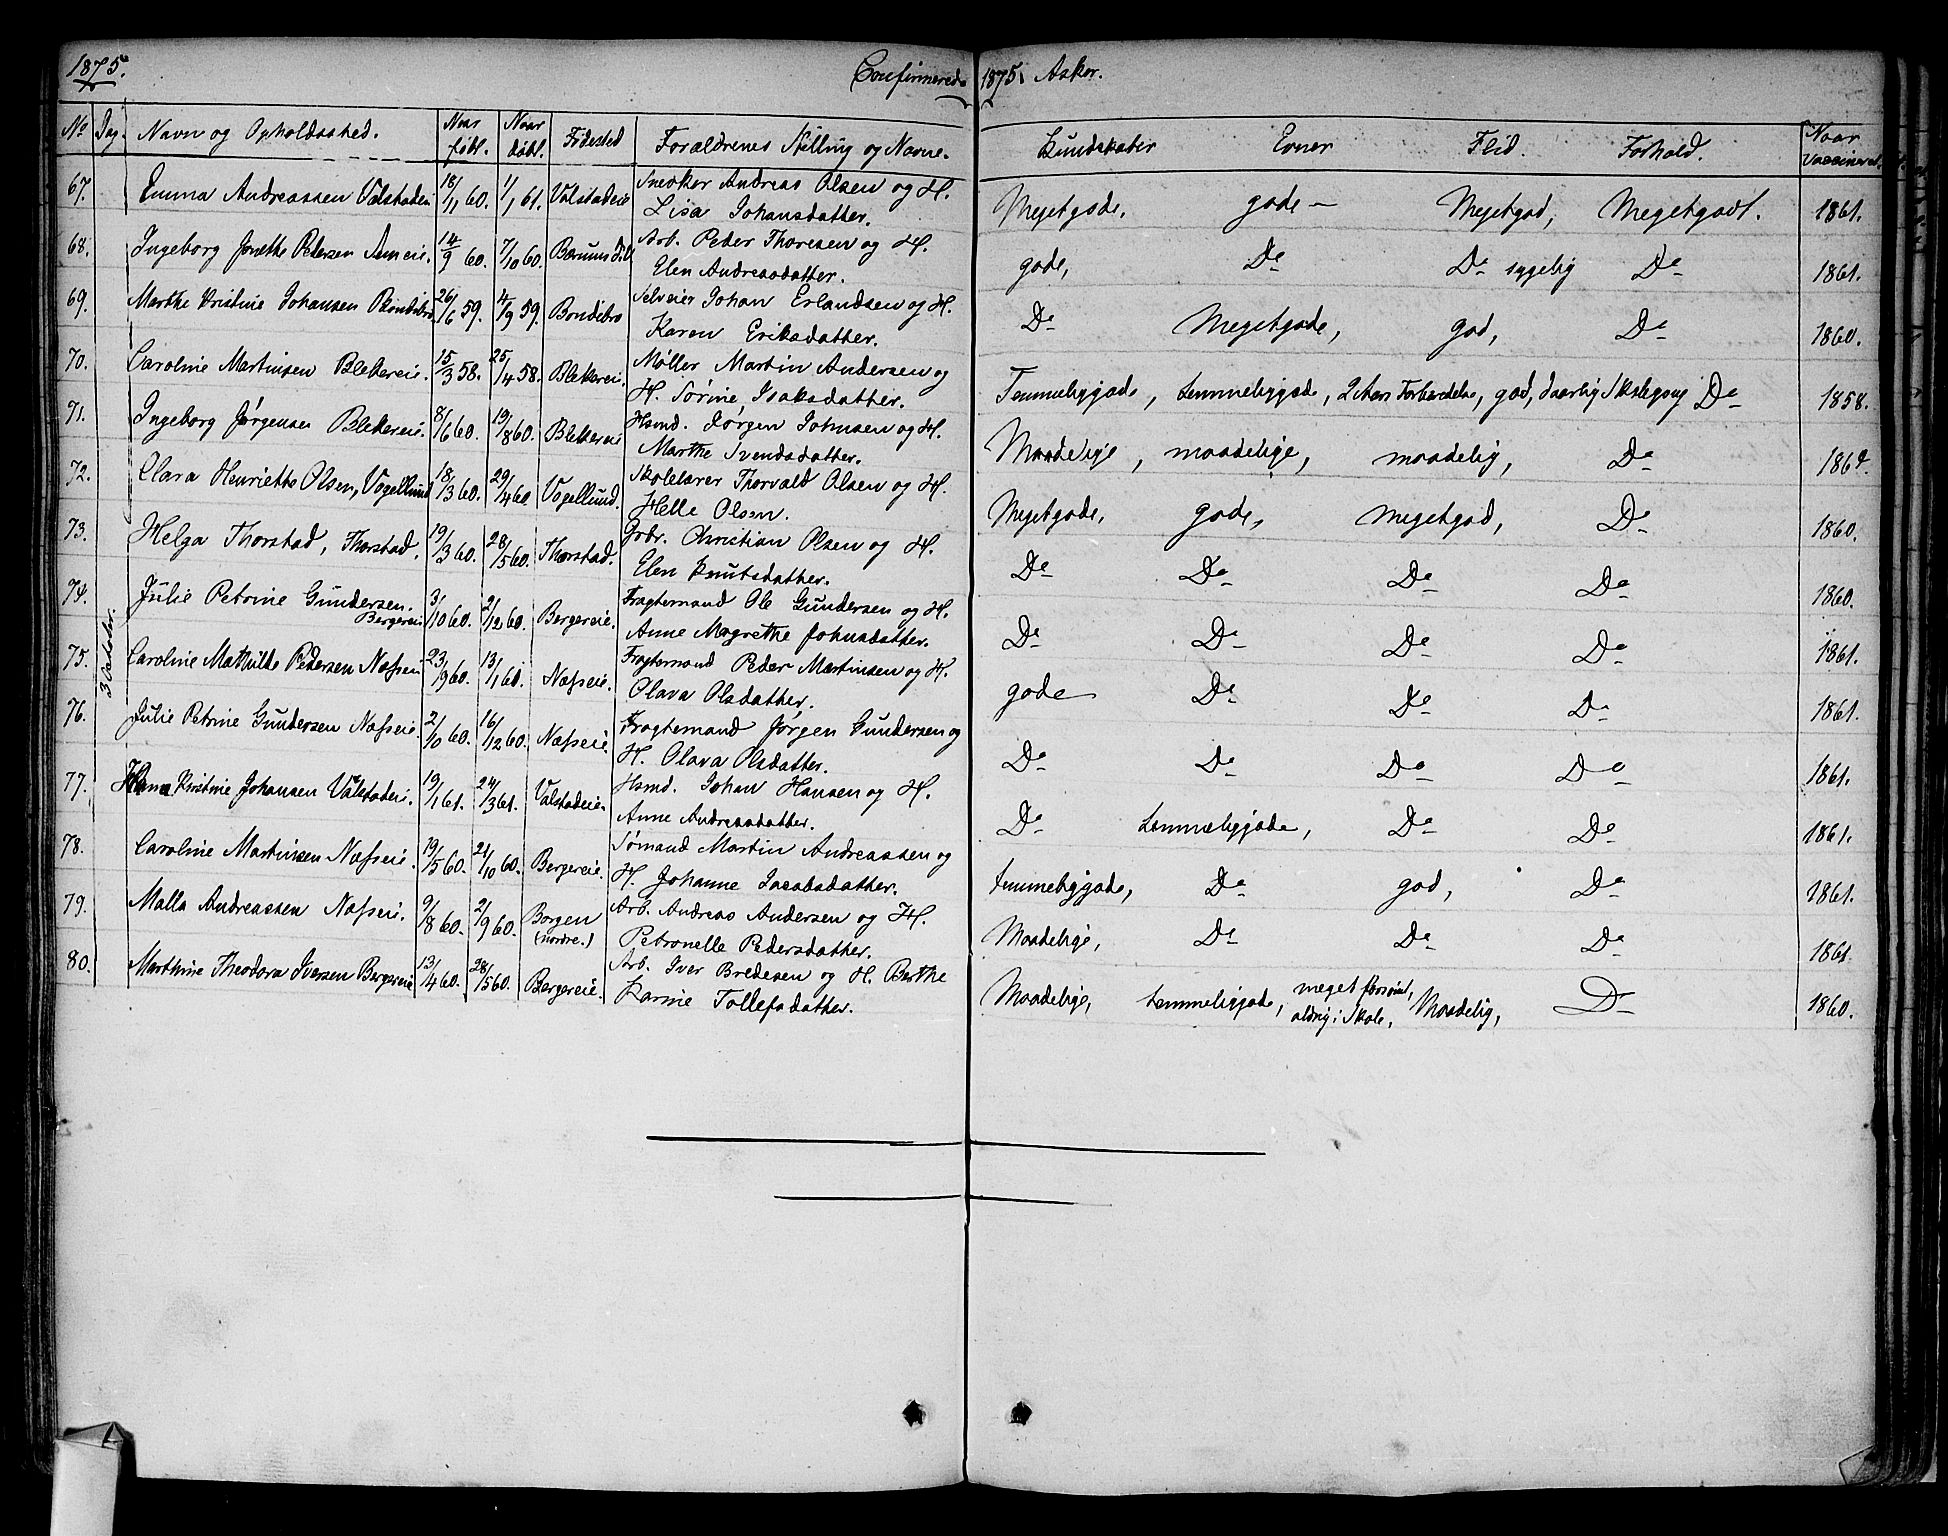 1875. Confirmerede 1875. Asker.
No Dag. Navn og Opholdssted. Naar født. Naar døbt. Fødested Forældrenes Stilling og Navne. Kundskaber Evner Flid. Forhold. Naar vaccineret.
3 October.
67. Emma Andreassen Valstadeie 18/11 60. 1/1 61. Valstadeie Snedker Andreas Olsen og H. Megetgode, gode Megetgod, Megetgodt. 1861.
Lisa Johansdatter.
68. Ingeborg Petersen 14/9 60. 7/10 60. Bærums Arb. Peder Thoresen og H. gode, Do Do sygelig Do 1861.
Elen Andreasdatter.
69. Marthe Kristine Johansen Bondibro 26/6 59. 4/9 59. Bondibro Selveier Johan Erlandsen og H. Do Megetgode, god, Do 1860.
Karen Eriksdatter.
70. Caroline Martinsen Blekereie. 15/3 58. 25/4 58. Blekereie. Møller Martin Andersen og Temmeliggode, temmeliggode, 2 Aars Forberedelse, god, daarlig Skolegang Do 1858.
H. Sørine Isaksdatter.
71. Ingeborg Jørgensen Blekereie. 8/6 60. 19/8 60. Blekereie Hsmd. Jørgen Johnsen og H. Maadelige, maadelige, maadelig, Do
Marthe Svendsdatter.
72. Clara Henriette Olsen, Vogellund 18/3 60. 29/4 60. Vogellund. Skolelærer Thorvald Olsen og H. Megetgode, gode, megetgod, Do 1860.
Helle Olsen.
73. Helga Thorstad, Thorstad. 19/3 60. 28/5 60. Thorstad. Grbr. Christian Olsen og H. Do Do Do Do 1860.
Elen Knutsdatter.
74. Julie Petrine Gundersen. Bergereie 3/10 60. 2/12 60. Bergereie. Fragtemand Ole Gundersen og H. Do Do Do Do 1861.
Anne Magrethe Johnsdatter.
75. Caroline Mathilde Pedersen Næseie 23/9 60. 13/1 60. Næseie. Fragtemand Peder Martinsen og H. gode Do Do Do 1861.
Olava Olsdatter,
76. Julie Petrine Gundersen Næseie. 2/10 60. 16/12 60. Næseie Fragtemand Jørgen Gundersen og Do Do Do Do 1861.
H. Olava Olsdatter.
77. Kristine Johansen Valstadeie. 19/1 61. 24/3 61. Valstadeie Hsmd. Johan Hansen og H. Do Temmeliggode, Do Do 1861.
Anne Andreasdatter.
78. Caroline Martinsen Næseie. 19/5 60. 21/10 60. Bergereie. Sømand Martin Andreassen og temmeliggode, Do god, Do 1861.
H. Johanne Jacobsdatter.
79. Malla Andreassen Næseie. 9/8 60. 2/9 60. Borgen (nordre.) Arb. Andreas Andersen og H. Maadelige, Do Do Do 1861.
Petronelle Pedersdatter.
80. Marthine Theodora Iversen Bergereie 13/4 60. 28/5 60. Bergereie. Arb. Iver Bredesen og H. Berthe Maadelige, temmeliggode, meget forsømt, aldrig i Skole, Maadelig, Do 1860.
Karine Tollefsdatter.